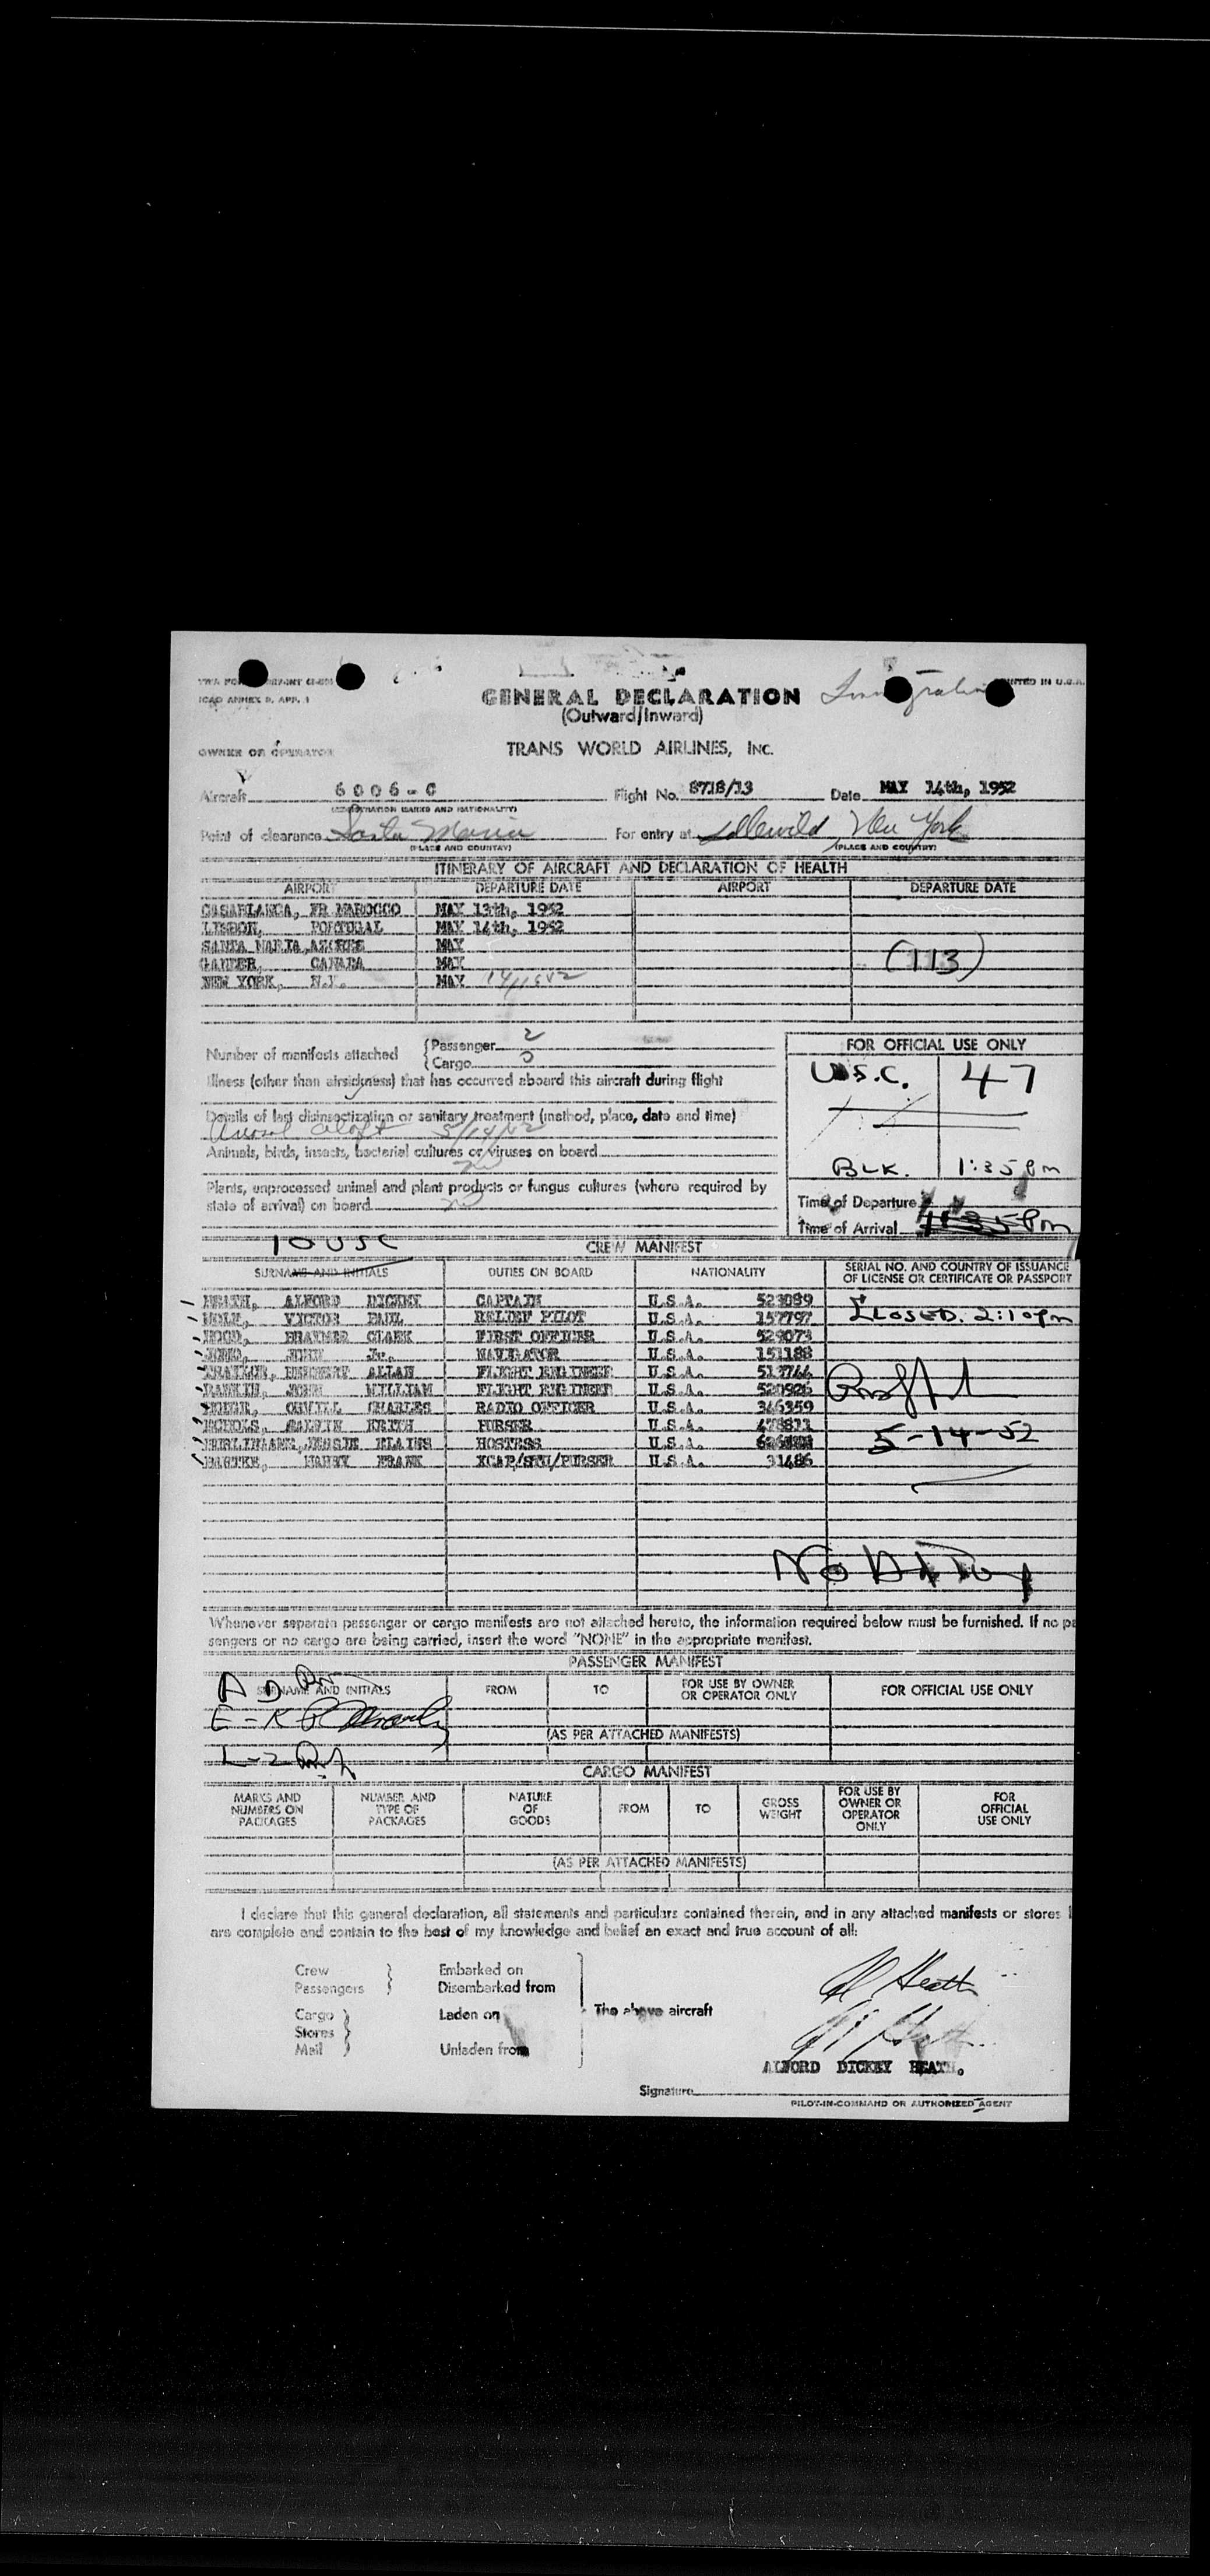 ICAO ANNEX 9, APP. 1
PRINTED IN U.S.A.
GENERAL DECLARATION
(Outward/Inward)
OWNER OR OPERATOR
TRANS WORLD AIRLINES, INC.
Aircraft 6006-C Flight No. 8718/13 Date MAY 14th, 1952
(REGISTRATION MARKS AND NATIONALITY)
Point of clearance Santa Maria For entry at Idlewild, New York
(PLACE AND COUNTRY) (PLACE AND COUNTRY)
ITINERARY OF AIRCRAFT AND DECLARATION OF HEALTH
AIRPORT DEPARTURE DATE AIRPORT DEPARTURE DATE
CASABLANCA, FR MAROCCO MAY 13th, 1952
LISBON, PORTUGAL MAY 14th, 1952
SANTA MARIA, AZORES MAY
GANDER, CANADA MAY (113)
NEW YORK, N.Y. MAY
Number of manifests attached {Passenger 2
{Cargo
FOR OFFICIAL USE ONLY
U.S.C. 47
Illness (other than airsickness) that has occurred aboard this aircraft during flight
Details of last disinsectization or sanitary treatment (method, place, date and time)
Aerosol aloft 5/14/52
Animals, birds, insects, bacterial cultures or viruses on board
BLK. 1:35 pm
Plants, unprocessed animal and plant products or fungus cultures (where required by
state of arrival) on board
Time of Departure
Time of Arrival
10 USC
CREW MANIFEST
SURNAME AND INITIALS DUTIES ON BOARD NATIONALITY SERIAL NO. AND COUNTRY OF ISSUANCE
OF LICENSE OR CERTIFICATE OR PASSPORT
HEATH, ALFORD DICKEY CAPTAIN U.S.A. 523089
HOLM, VICTOR PAUL RELIEF PILOT U.S.A. 157797 CLOSED. 2:10 pm
HOOD, CLARK FIRST OFFICER U.S.A. 529073
JOHN Jr. NAVIGATOR U.S.A. 151188
ALLAN FLIGHT ENGINEER U.S.A.
RANKIN, JOHN WILLIAM FLIGHT ENGINEER U.S.A. 520926
CHARLES RADIO OFFICER U.S.A. 346359
ECHOLS, KEITH PURSER U.S.A. 478811
ELAINE HOSTESS U.S.A. 5-14-52
BARTKE, HARRY FRANK U.S.A. 31486
Whenever separate passenger or cargo manifests are not attached hereto, the information required below must be furnished. If no pa
sengers or no cargo are being carried, insert the word "NONE" in the appropriate manifest.
PASSENGER MANIFEST
SURNAME AND INITIALS FROM TO FOR USE BY OWNER
OR OPERATOR ONLY FOR OFFICIAL USE ONLY
(AS PER ATTACHED MANIFESTS)
CARGO MANIFEST
MARKS AND
NUMBERS ON
PACKAGES NUMBER AND
TYPE OF
PACKAGES NATURE
OF
GOODS FROM TO GROSS
WEIGHT FOR USE BY
OWNER OR
OPERATOR
ONLY FOR
OFFICIAL
USE ONLY
(AS PER ATTACHED MANIFESTS)
I declare that this general declaration, all statements and particulars contained therein, and in any attached manifests or stores
are complete and contain to the best of my knowledge and belief an exact and true account of all:
Crew } Embarked on
Passengers } Disembarked from
Cargo } Laden on The above aircraft
Stores }
Mail } Unladen from
Al Heath
ALFORD DICKEY HEATH.
Signature
PILOT-IN-COMMAND OR AUTHORIZED AGENT